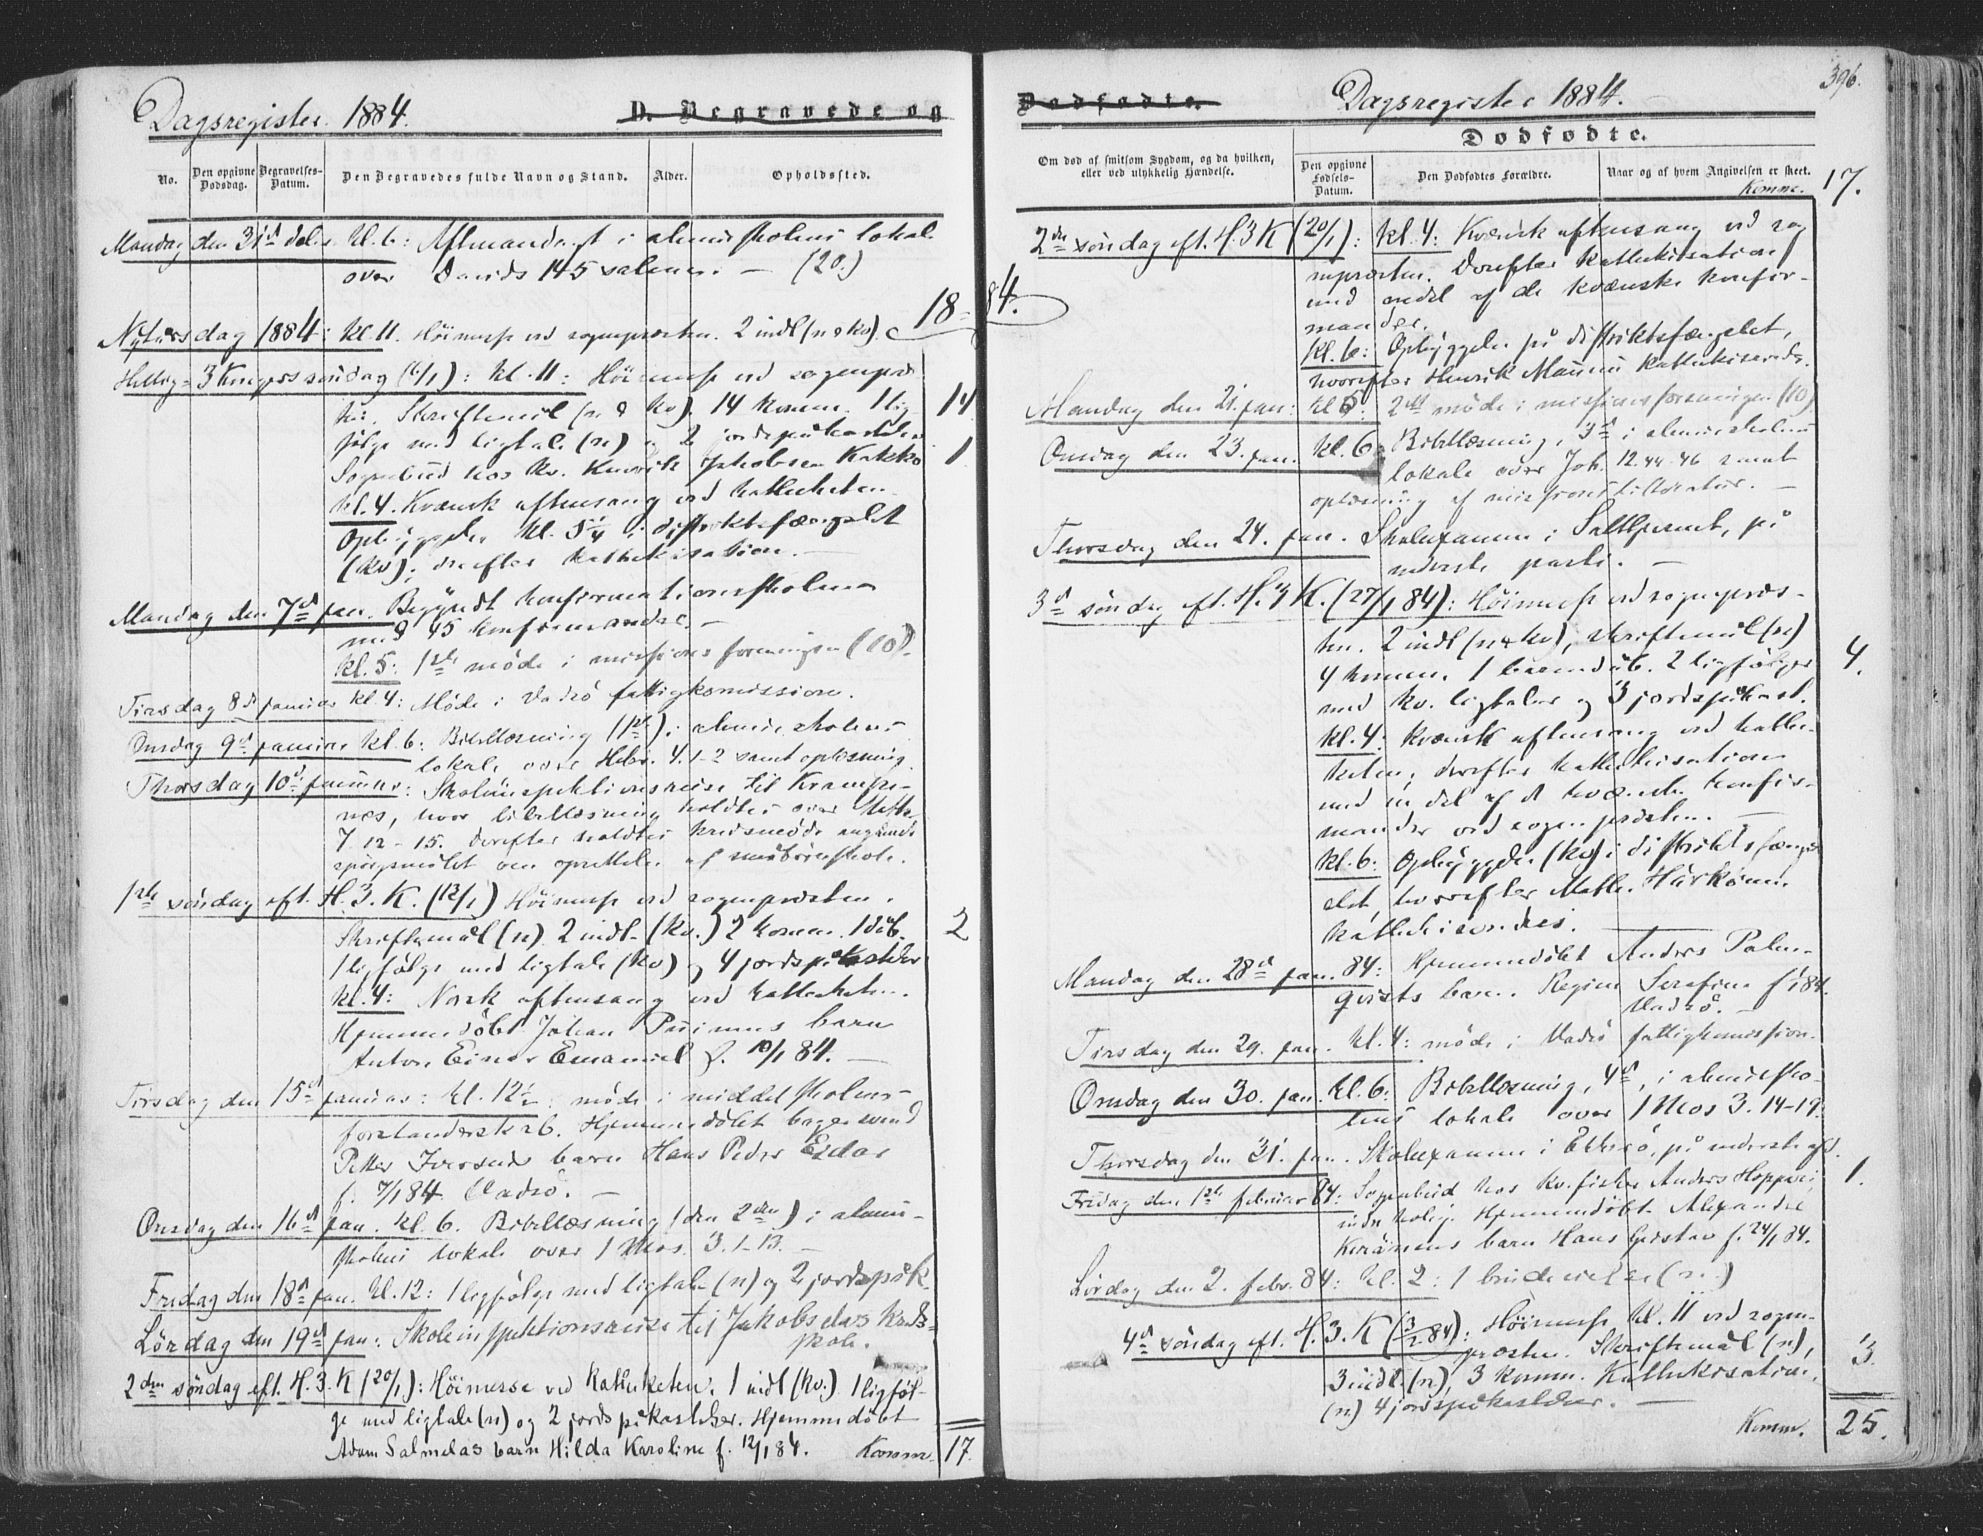 Dagsregister 1884.
D. Begravede og
No.
Den opgivne Dødsdag.
Begravelses-Datum.
Den Begravedes fulde Navn og Stand.
Alder.
Opholdssted.
Mandag den 31te dec. kl. 6: Aftenandagt i almueskolens lokale
over Davids 145 salme. — (20.)
1884.
Nytårsdag 1884: kl. 11. Höimesse ved sognepresten. 2 indl (n & kv).
Hellig-3 Kongerssöndag (6/1): kl. 11: Höimesse ved sognepres-
ten. Skriftemål (n & kv). 14 komm. 1 lig- 14
fölge med ligtale (n) og 2 jordspåkastelser
Sognebud hos kv. Henrik Jakobsen Kakko 1
kl. 4. Kvænsk aftensang ved katecheten
Opbyggelse kl. 5 1/4 i distriktsfængslet
(kv); derefter katekisation. —
Mandag den 7de jan. Begyndt konfirmationsskolen
med 45 konfirmander. —
kl. 5: 1ste möde i missionsforeningen (10).
Tirsdag 8de januar kl 4: Möde i Vadsö fattigkomission.
Onsdag 9de januar kl. 6: Bibellæsning (1ste) i almueskolens
lokale over Hebr. 4.1-2 samt oplæsning.
Thorsdag 10de januar: Skoleinspektionsreise til Krampe-
nes, hvor bibellæsning holdtes over Matth.
7. 12-15. Derefter holdtes kredsmöde angående
spörgsmålet om oprettelse af småbörnskole.
1ste söndag eft. H. 3. K. (13/1) Höimesse ved sognepresten.
Skriftemål (n). 2 indl. (kv.) 2 komm. 1 dåb. 2
1 ligfölge med ligtale (kv) og 4 jordspåkastelser
kl. 4: Norsk aftensang ved katecheten.
Hjemmedöbt Johan Pu barn
Anton Einar Emanuel f. 10/1 84. —
Tirsdag den 15de januar: kl. 12 1/2: möde i middelskolens
forstanderskab. Hjemmedöbt bagersvend
Petter Iversens barn Hans Peder Esdar
f. 7/1 84. Vadsö. —
Onsdag den 16de jan. kl. 6. Bibellæsning (den 2den) i almue-
skolens lokale over 1 Mos. 3. 1-13. —
Fredag den 18de jan. kl. 12: 1 ligfölge med ligtale (n) og 2 jordspåk.
Lördag den 19de jan: Skoleinspektionsreise til Jakobselvs kreds-
skole.
2den söndag eft. H. 3. K (20/1): Höimesse ved Kateketen. 1 indl (kv.) 1 ligföl-
ge med ligtale (n) og 2 jordspåkastelser. Hjemmedöbt
Adam Salmelas barn Hilda Karoline f. 12/1 84. Komm. 17.
Dödfödte.
Dagsregister 1884.
396.
Dödfödte.
Om död af smitsom Sygdom, og da hvilken, eller ved ulykkelig Hændelse.
Den opgivne Födsels-Datum.
Den Dödfödtes Forældre.
Naar og af hvem Angivelsen er skeet.
Komm. 17.
2den söndag eft. H. 3 K (20/1): kl. 4: Kvænsk aftensang ved sog
nepresten. Derefter katekisation
med endel af de kvænske konfir-
mander.
kl. 6: Opbyggelse på distriktsfængslet,
hvorefter Henrik Maunu katekiserede.
Mandag den 21. jan: kl 5: 2det möde i missionsforeningen (10)
Onsdag den 23. jan. kl. 6: Bibellæsning, 3de i almueskolens
lokale over Joh. 12. 44-46 samt
oplæsning af missionslitteratur. —
Thorsdag den 24. jan. Skoleexamen i Salthjernet, på
nederste parti. —
3de söndag eft. H. 3 K. (27/1 84): Höimesse ved sognepres-
ten. 2 indl (n & kv), skriftemål (n)
4 komm. 1 barnedåb. 2 ligfölger 4.
med kv. ligtaler og 3 jordspåkast.
kl. 4: Kvænsk aftensang ved kate-
keten; derefter katekisation
med en del af de kvænske konfir-
mander ved sognepresten. —
kl. 6: Opbyggelse (kv) i distriktsfængs
let hvorefter Math. Härkönen
katekiseredes.
Mandag den 28de jan. 84: Hjemmedöbt Anders Palm-
qvists barn. Regine Serafine f. 1 84.
Vadsö. —
Tirsdag den 29. jan. kl. 4: möde i Vadsö fattigkomission.
Onsdag den 30. jan. kl. 6: Bibellæsning, 4de, i almuesko-
lens lokale over 1 Mos 3. 14-19.
Thorsdag den 31. jan. Skoleexamen i Ekkerö, på nederste afd.
Fredag den 1ste februar 84: Sognebud hos kv. fisker Anders Hopponi 1.
indre bolig. Hjemmedöbt Alexander
Keränens barn Hans Gustav f. 24/1 84.
Lördag den 2. febr. 84: kl. 2: 1 brudevielse (n.)
4de söndag eft. H. 3. K (3/2 84): Höimesse kl. 11 ved sogne-
presten. Skriftemål (n), 3.
3 indl. (n), 3 komm. Katekisation.
(n) 4 jordspåkastelser. —
Komm. 25.